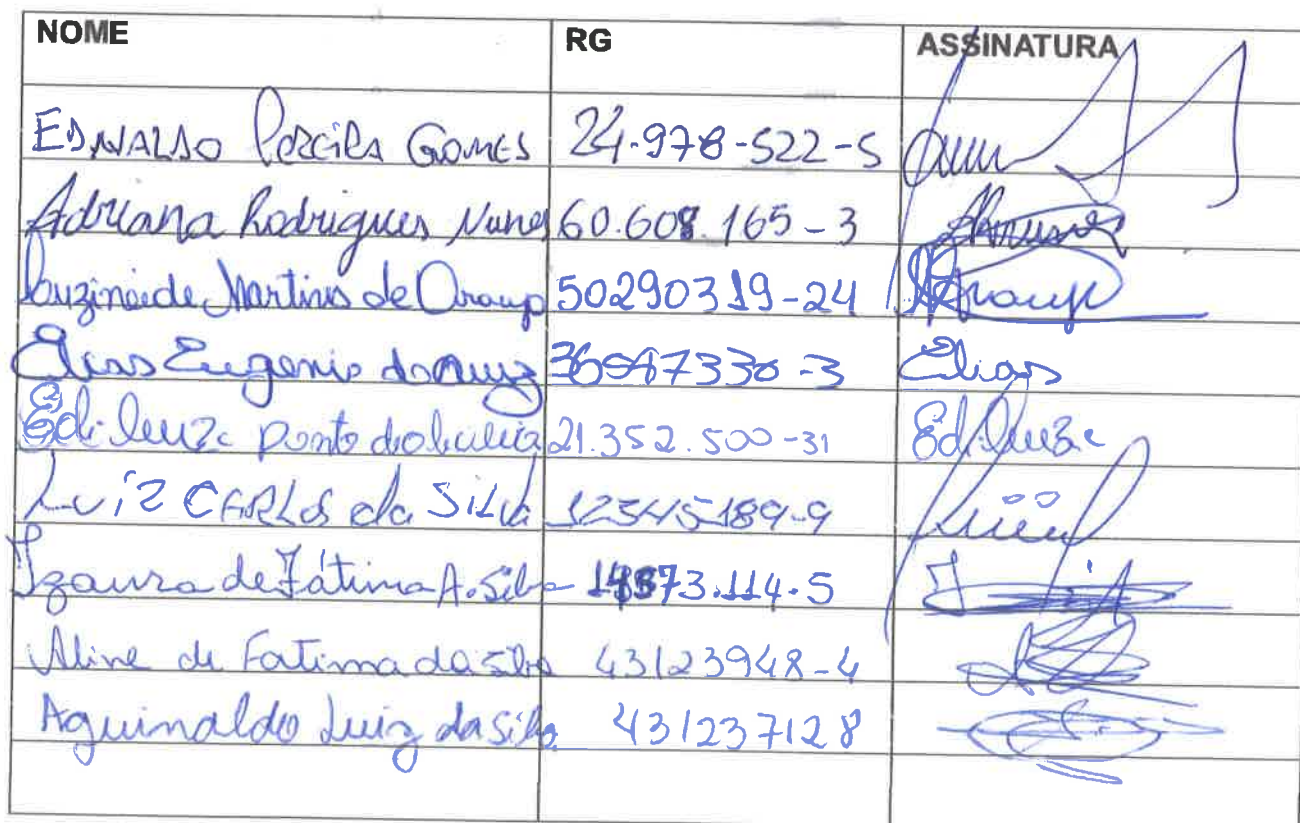 NOME RG ASSINATURA
EDNALDO Pereira Gomes 24.978-522-5
Adriana Rodrigues Nunes 60.608.165-3
Luzineide Martins de Araujo 50290319-24 Araujo
Elias Eugenio da Cruz 36947330-3 Elias
Edileuze 21.352.500-31 Edileuze
Luiz CARLOS da Silva 12345189-9
Izaura de Fátima A. Silva 73.114-5
Aline de Fatima da Silva 43123948-4
Aguinaldo Luiz da Silva 431237128